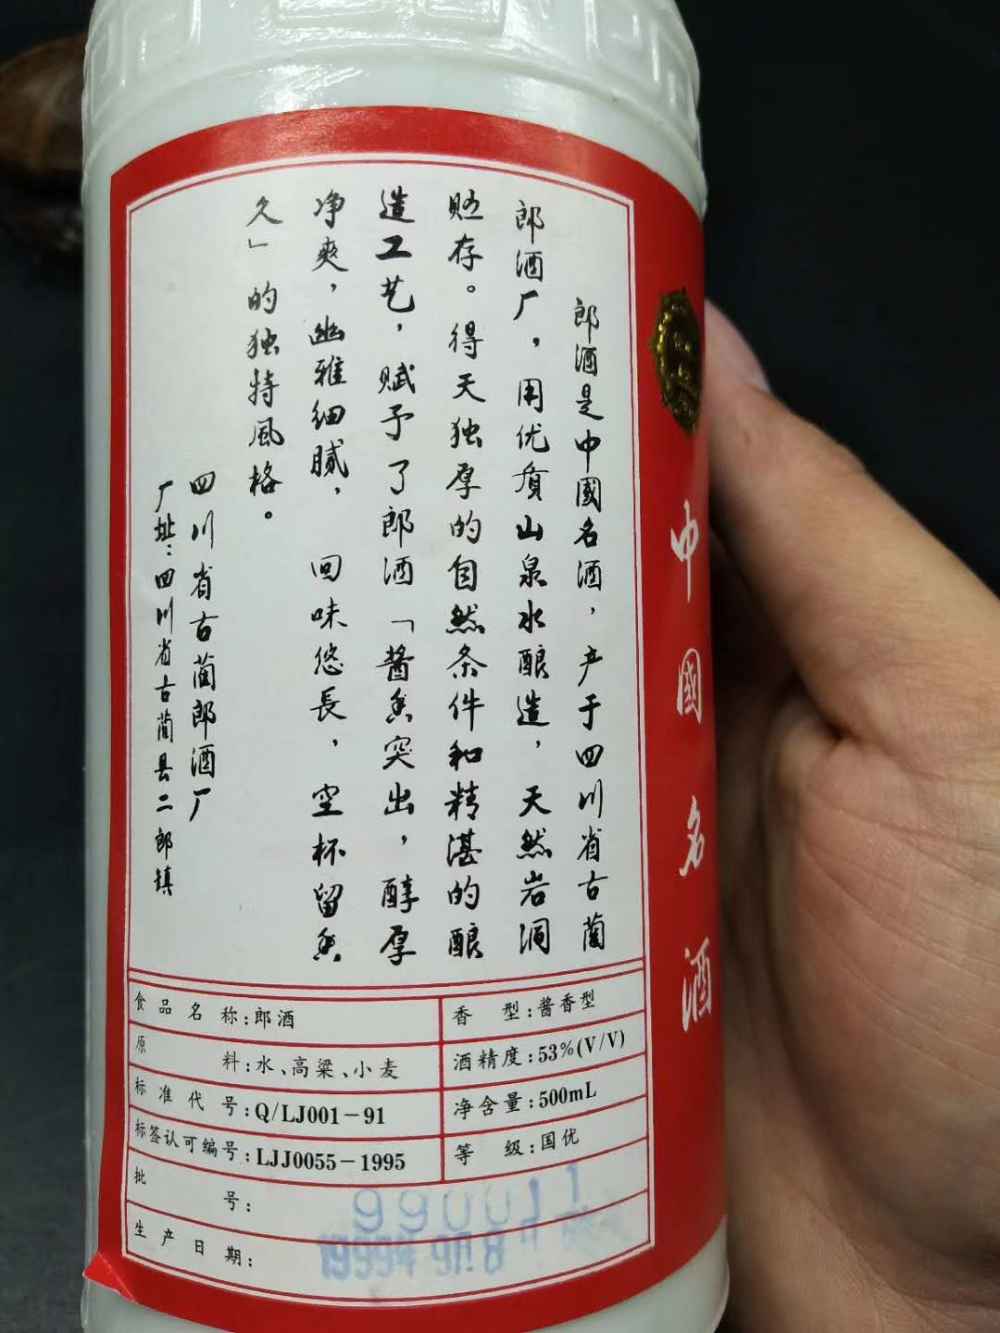 郎酒是中國名酒，产于四川省古蔺
郎酒厂，用优质山泉水酿造，天然岩洞
贮存。得天独厚的自然条件和精湛的酿
造工艺，赋予了郎酒「酱香突出，醇厚
净爽，幽雅细腻，回味悠長，空杯留香
久」的独特风格。
四川省古蔺郎酒厂
厂址：四川省古蔺县二郎镇
中國名酒
食品名称：郎酒
香型：酱香型
原料：水、高粱、小麦
酒精度：53%(V/V)
标准代号：Q/LJ001-91
净含量：500mL
标签认可编号：LJJ0055-1995
等级：国优
批号：
生产日期：